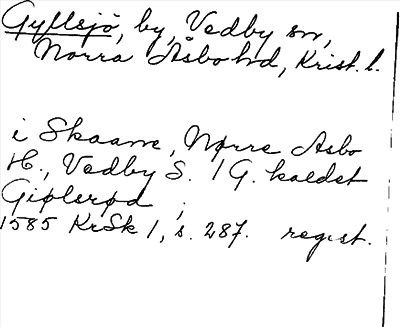 Gyllsjö, by, Vedby sn,
Norra Åsbo hd, Krist. l.
i Skaane, Nørre Asbo
H., Vedby S. / G. kaldet
Giølsrød ;
1585 KrSk /, s. 287. regist.